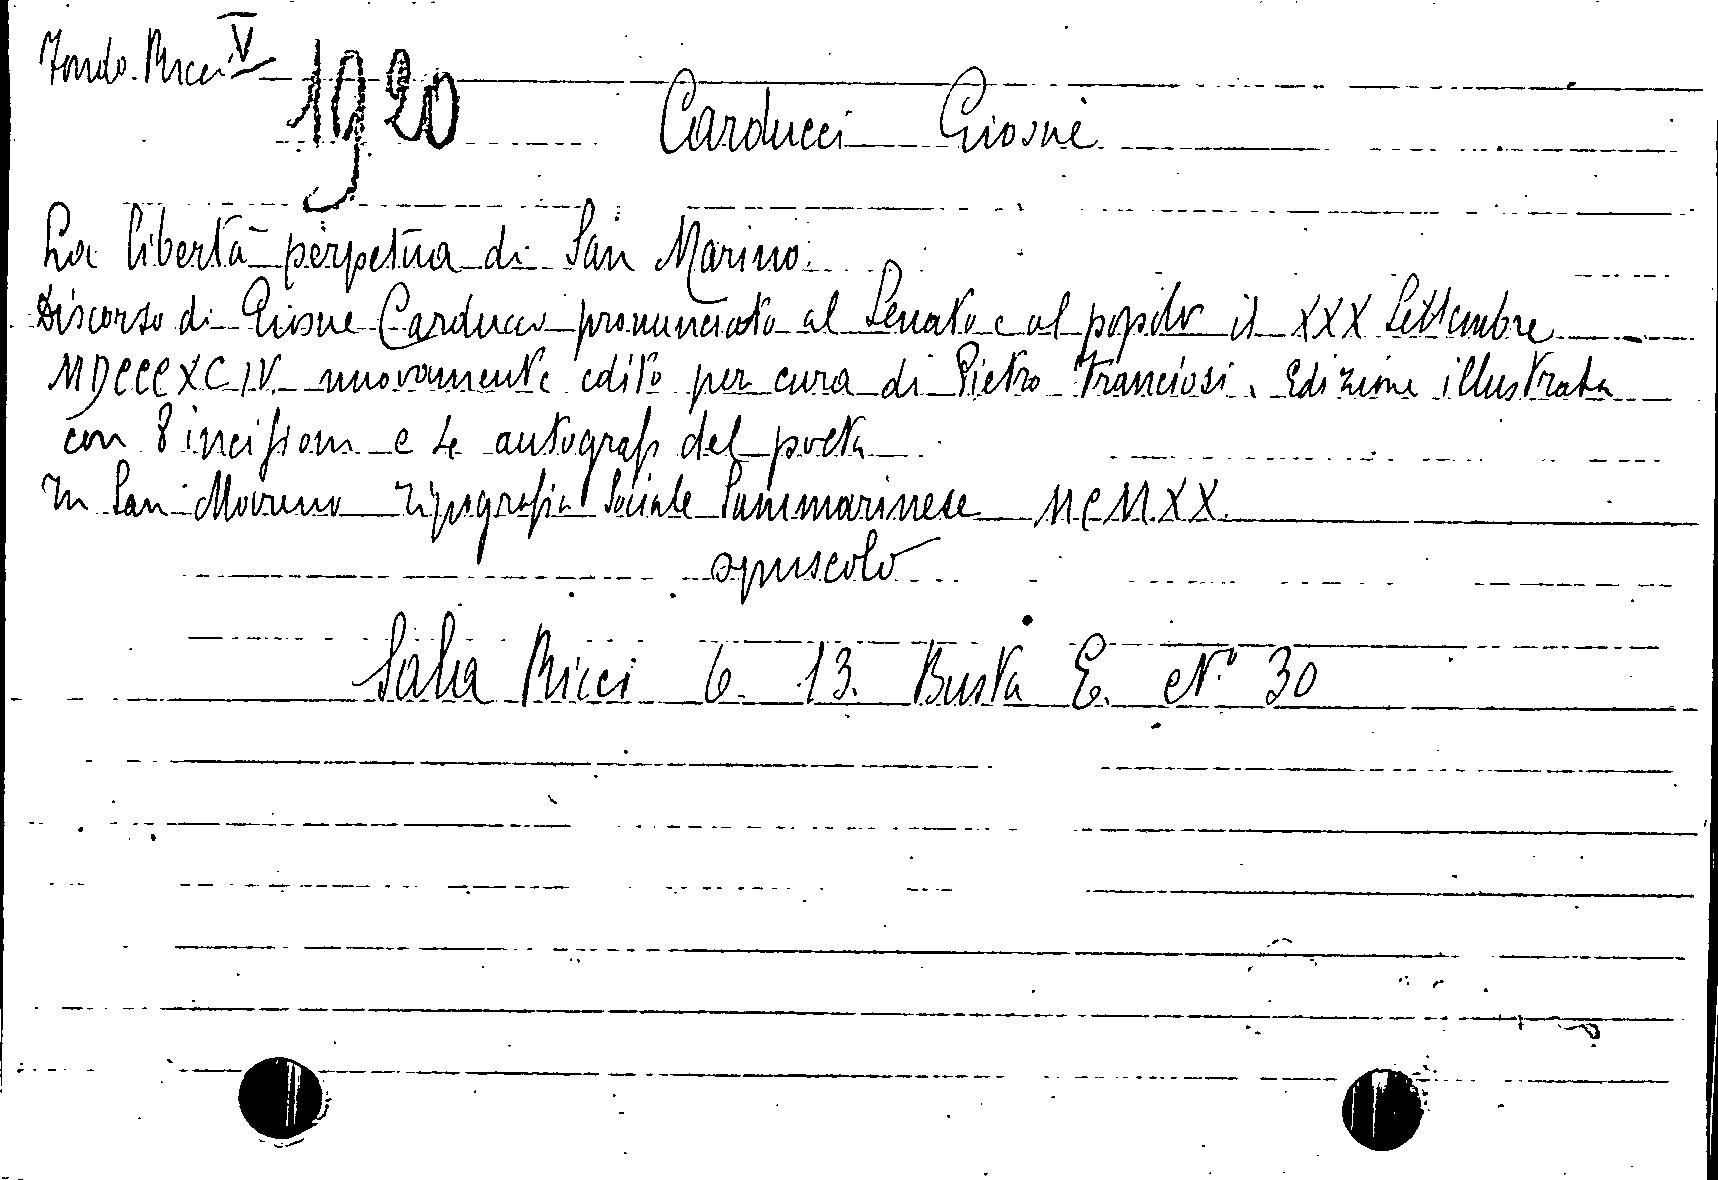 Fondo Ricci V
1920
Carducci Giosuè
La libertà perpetua di San Marino.
Discorso di Giosue Carducci pronunciato al Senato e al popolo il XXX Settembre
MDCCCXCIV nuovamente edito per cura di Pietro Franciosi. Edizione illustrata
con 8 incisioni e 4 autografi del poeta
In San Marino Tipografia Sociale Sammarinese MCMXX.
opuscolo
Sala Ricci 6. 13. Busta E. N.° 30